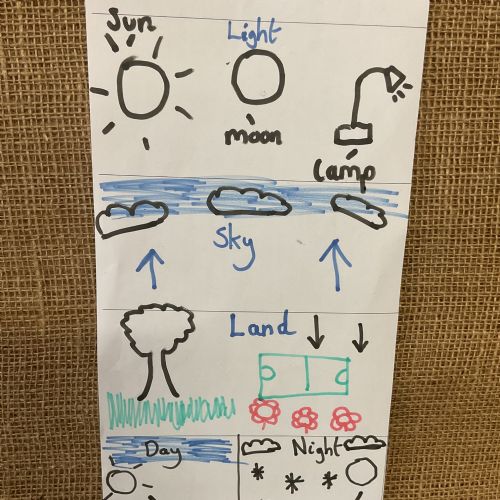 Sun
Light
moon
Lamp
Sky
Land
Day
Night